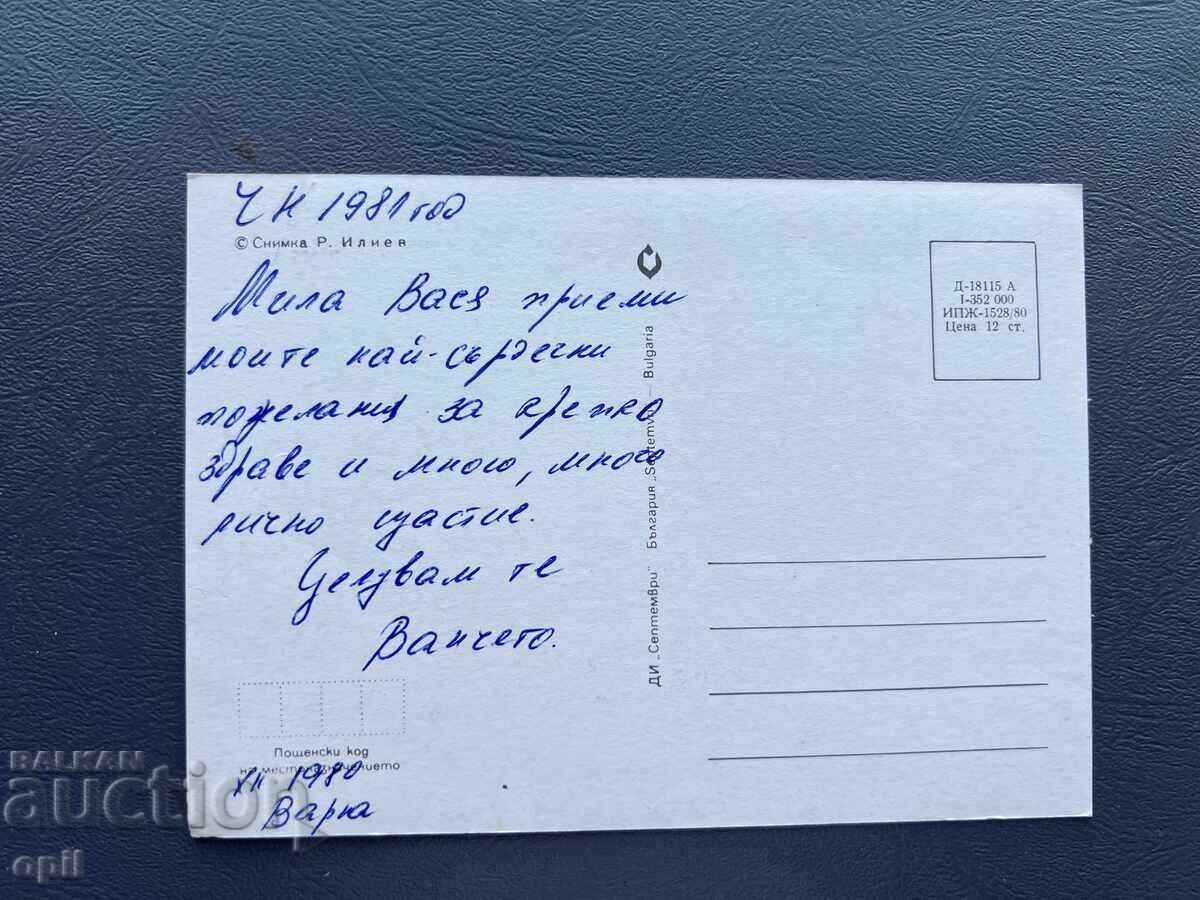 ЧН 1981 год
© Снимка Р. Илиев
Мила Вася приеми
моите най-сърдечни
пожелания за крепко
здраве и много, много
лично щастие.
Целувам те
Ванчето.
Пощенски код
на местоназначението
XII 1980
Варна
ДИ „Септември" България „Septemvri" Bulgaria
Д-18115 А
I-352 000
ИПЖ-1528/80
Цена 12 ст.
BALKAN
auction
opil